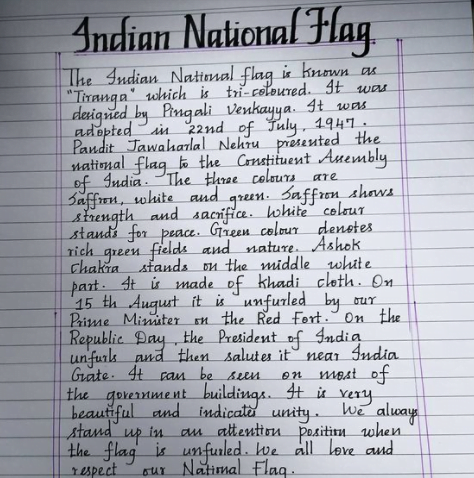 Indian National Flag
The Indian National flag is known as
"Tiranga" which is tri-coloured. It was
designed by Pingali Venkayya. It was
adopted in 22nd of July, 1947.
Pandit Jawaharlal Nehru presented the
national flag to the Constituent Assembly
of India. The three colours are
Saffron, white and green. Saffron shows
strength and sacrifice. White colour
stands for peace. Green colour denotes
rich green fields and nature. Ashok
Chakra stands on the middle white
part. It is made of khadi cloth. On
15 th August it is unfurled by our
Prime Minister on the Red Fort. On the
Republic Day, the President of India
unfurls and then salutes it near India
Gate. It can be seen on most of
the government buildings. It is very
beautiful and indicates unity. We always
stand up in an attention position when
the flag is unfurled. We all love and
respect our National Flag.